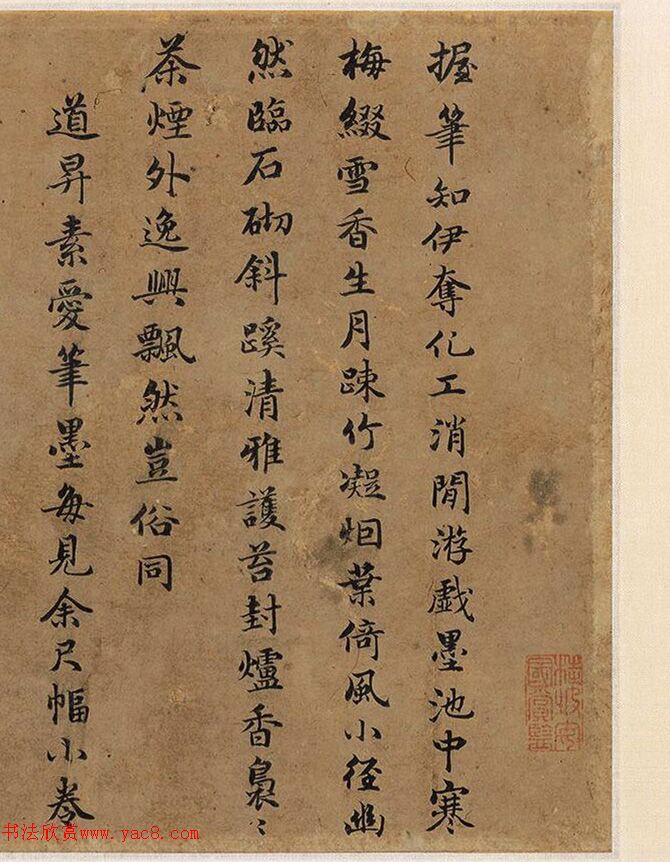 握筆知伊奪化工消閒游戲墨池中寒
梅綴雪香生月踈竹凝烟葉倚風小徑幽
然臨石砌斜蹊清雅護苔封爐香裊〻
茶煙外逸興飄然豈俗同
道昇素愛筆墨每見余尺幅小卷
书法欣赏www.yac8.com